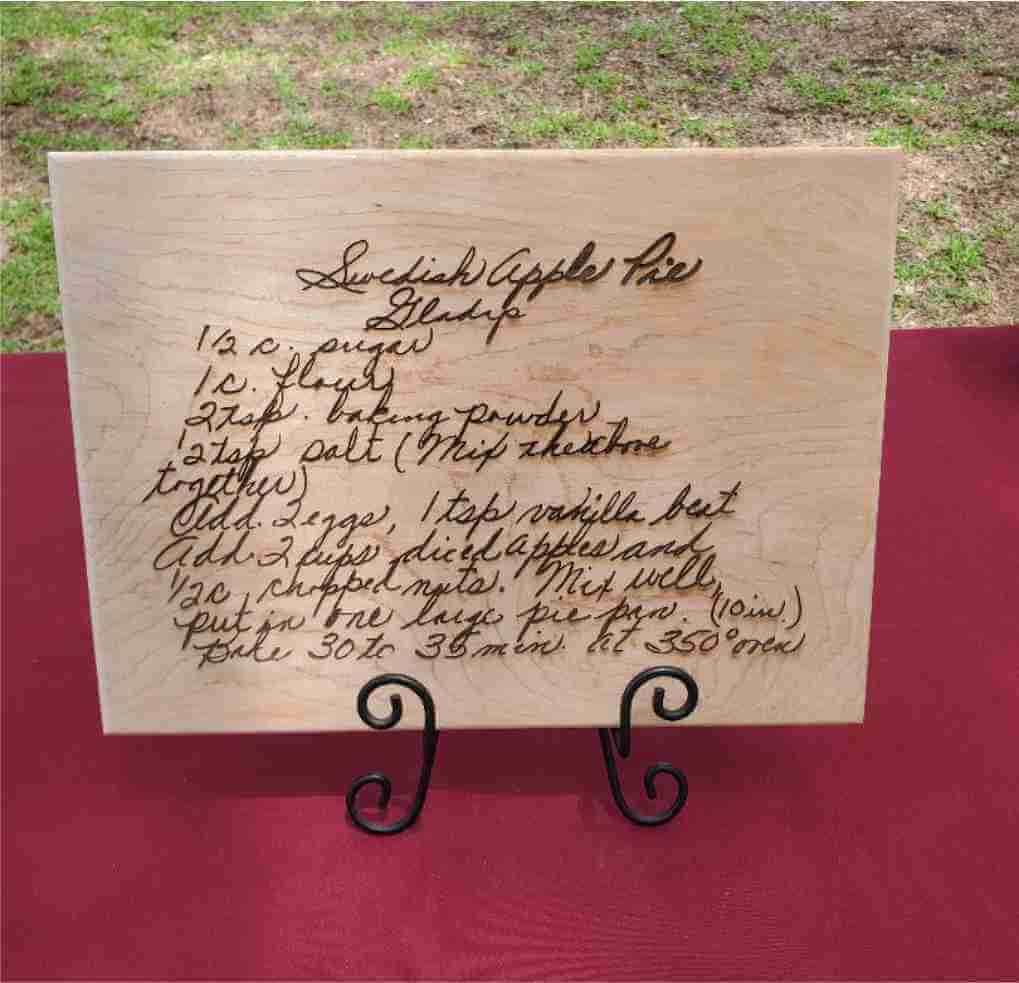 Swedish Apple Pie
Gladys
1/2 c. sugar
1 c. flour
2 tsp. baking powder
1/2 tsp salt (Mix the above
together)
Add 2 eggs, 1 tsp vanilla beat
Add 2 cups diced apples and
1/2 c. chopped nuts. Mix well,
put in one large pie pan. (10 in.)
Bake 30 to 35 min. at 350° oven